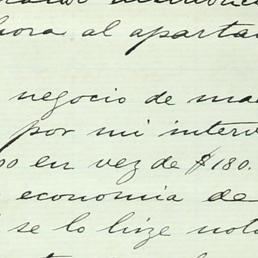 hora al aparta
negocio de ma
por mi interv
00 en vez de $180.
economia de
se lo hize nota